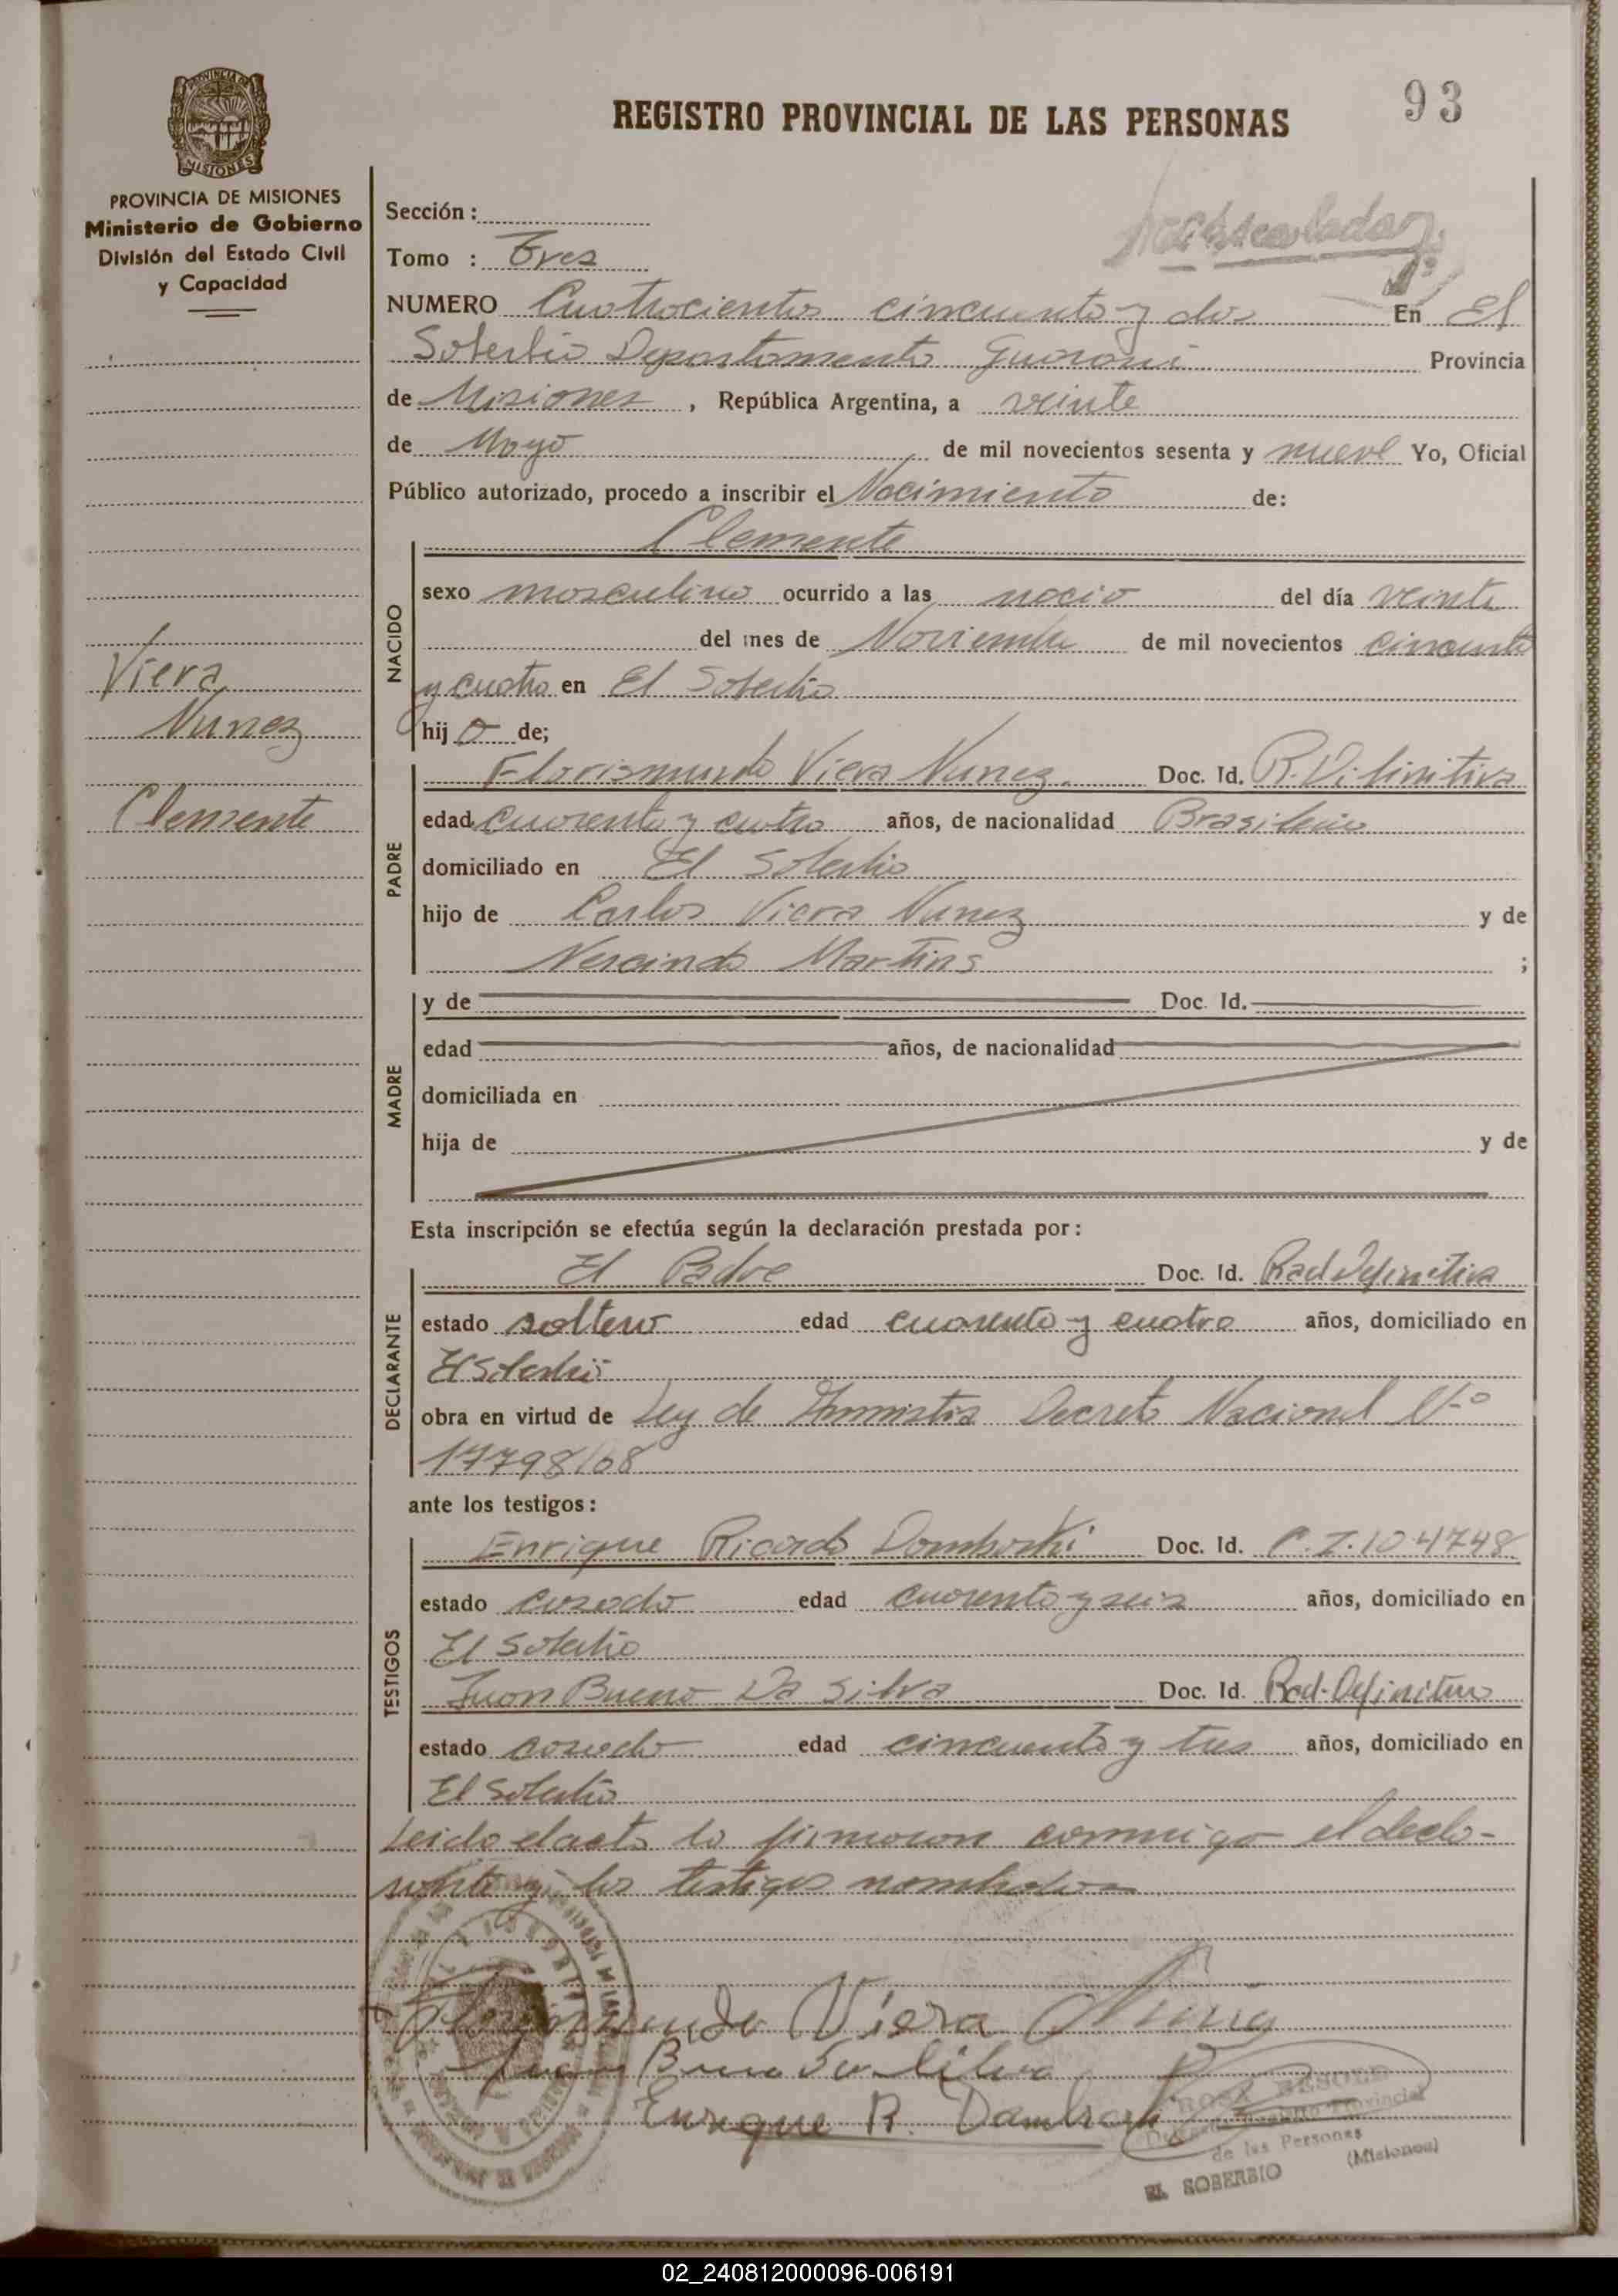 93
REGISTRO PROVINCIAL DE LAS PERSONAS
PROVINCIA DE MISIONES
Ministerio de Gobierno
División del Estado Civil
y Capacidad
Sección :
Tomo : Tres
NUMERO Cuatrocientos cincuenta y dos En El
Soberbio Departamento Guarani Provincia
de Misiones , República Argentina, a veinte
de Mayo de mil novecientos sesenta y nueve Yo, Oficial
Público autorizado, procedo a inscribir el Nacimiento de:
Clemente
NACIDO
sexo masculino ocurrido a las del día veinte
del mes de Noviembre de mil novecientos cincuenta
y cuatro en El Soberbio
hij o de;
Viera
Nunez
Clemente
PADRE
Florismundo Viera Nunez. Doc. Id. R. Difinitiva
edad cuarenta y cuatro años, de nacionalidad Brasileño
domiciliado en El Soberbio
hijo de Carlos Viera Nunez y de
Martins ;
MADRE
y de Doc. Id.
edad años, de nacionalidad
domiciliada en
hija de y de
Esta inscripción se efectúa según la declaración prestada por :
DECLARANTE
El Padre Doc. Id. Rad Definitiva
estado soltero edad cuarenta y cuatro años, domiciliado en
El Soberbio
obra en virtud de Ley de Amnistia Decreto Nacional Nº
17798/68
ante los testigos :
TESTIGOS
Enrique Ricardo Domborski Doc. Id. C.I. 104748
estado casado edad cuarenta y seis años, domiciliado en
El Soberbio
Juan Bueno Da Silva Doc. Id. Rad-Definitiva
estado casado edad cincuenta y tres años, domiciliado en
El Soberbio
Leido el acta la firmaron conmigo el decla-
rante y los testigos nombrados
Florismundo Viera Nunis
Juan Bueno Da Silva
Enrique R. Dambroski
de las Personas
EL SOBERBIO (Misiones)
02_240812000096-006191